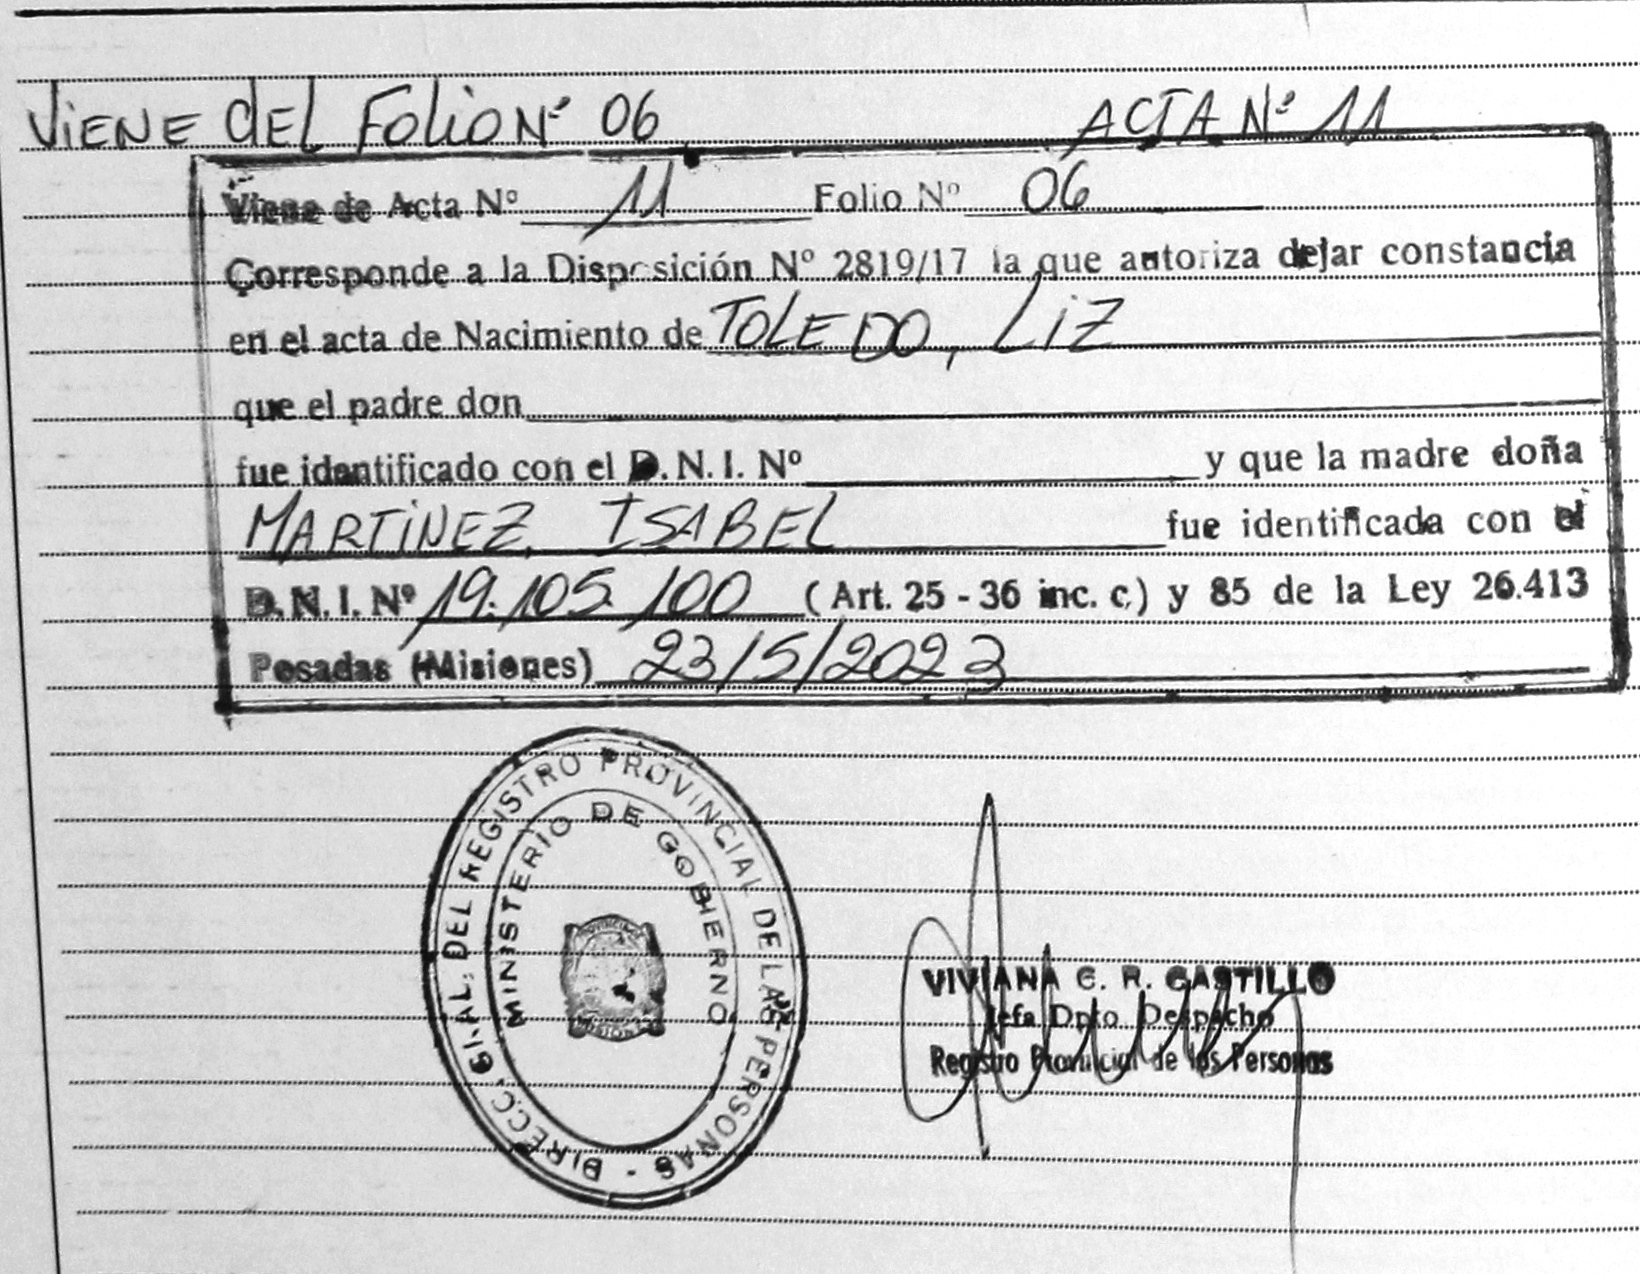 ViENE dEL FOLiO Nº 06 ACTA Nº 11
Viene de Acta Nº 11 Folio Nº 06
Corresponde a la Disposición Nº 2819/17 la que autoriza dejar constancia
en el acta de Nacimiento de TOLEDO, LiZ
que el padre don
fue identificado con el D.N.I. Nº y que la madre doña
MARTiNEZ, ISABEL fue identificada con el
D.N.I. Nº 19.105.100 (Art. 25 - 36 inc. c) y 85 de la Ley 26.413
Posadas (Misiones) 23/5/2023
DIRECC. GRAL. DEL REGISTRO PROVINCIAL DE LAS PERSONAS -
MINISTERIO DE GOBIERNO
VIVIANA C. R. CASTILLO
Jefa Dpto Despacho
Registro Provincial de las Personas